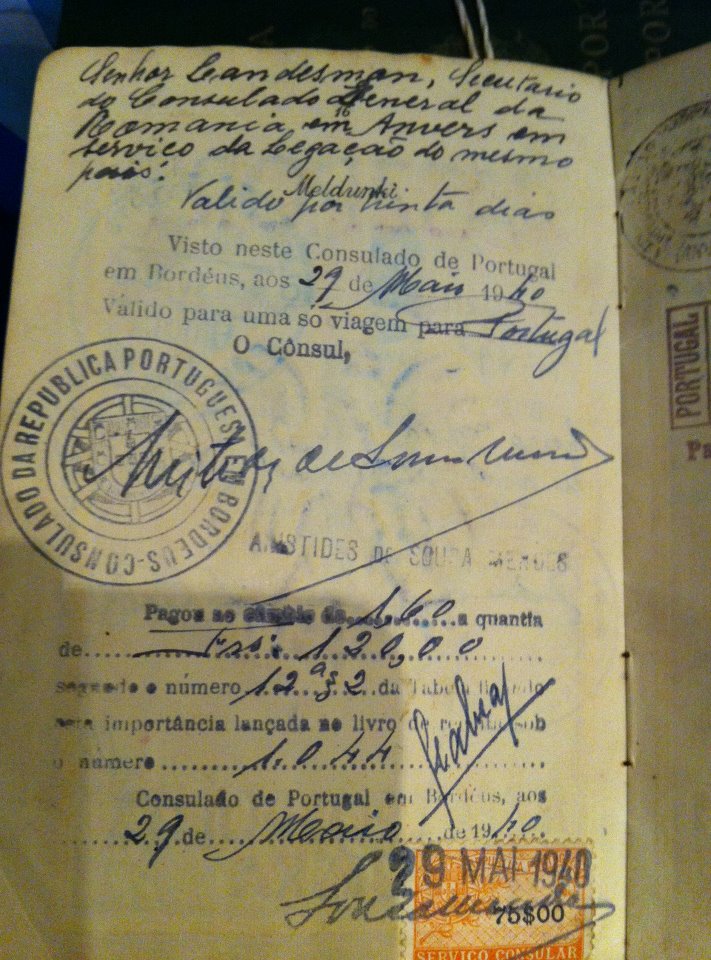 Senhor Landesman, Secretario
do Consulado General da
Romania em Anvers em
serviço da Legação do mesmo
pais.
Valido por trinta dias
Visto neste Consulado de Portugal
em Bordéus, aos 29 de Maio 1940
Válido para uma só viagem para Portugal
O Cônsul,
CONSULADO DA REPUBLICA PORTUGUESA EM BORDEUS
Aristides de Sousa Mendes
ARISTIDES DE SOUSA MENDES
Pagou ao câmbio de 160 a quantia
de Frs: 120,00
segundo o número 12 da Tabela
esta importância lançada no livro de receita sob
o número 1.044
Consulado de Portugal em Bordéus, aos
29 de Maio de 1940.
29 MAI 1940
75$00
SERVIÇO CONSULAR
PORTUGAL